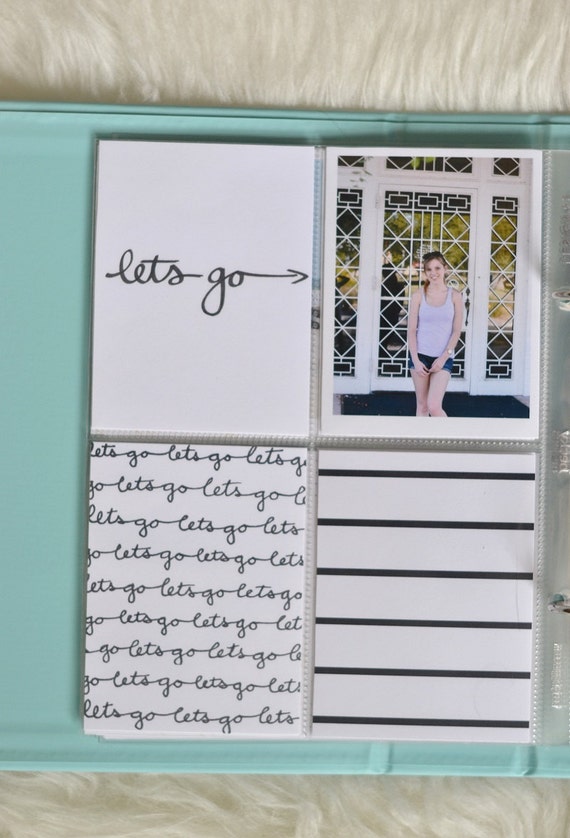 lets go
lets go lets go lets g
go lets go lets go l
lets go lets go lets
go lets go lets go
lets go lets go lets go
go lets go lets go let
go lets go lets go le
go lets go lets go let
lets go lets go lets